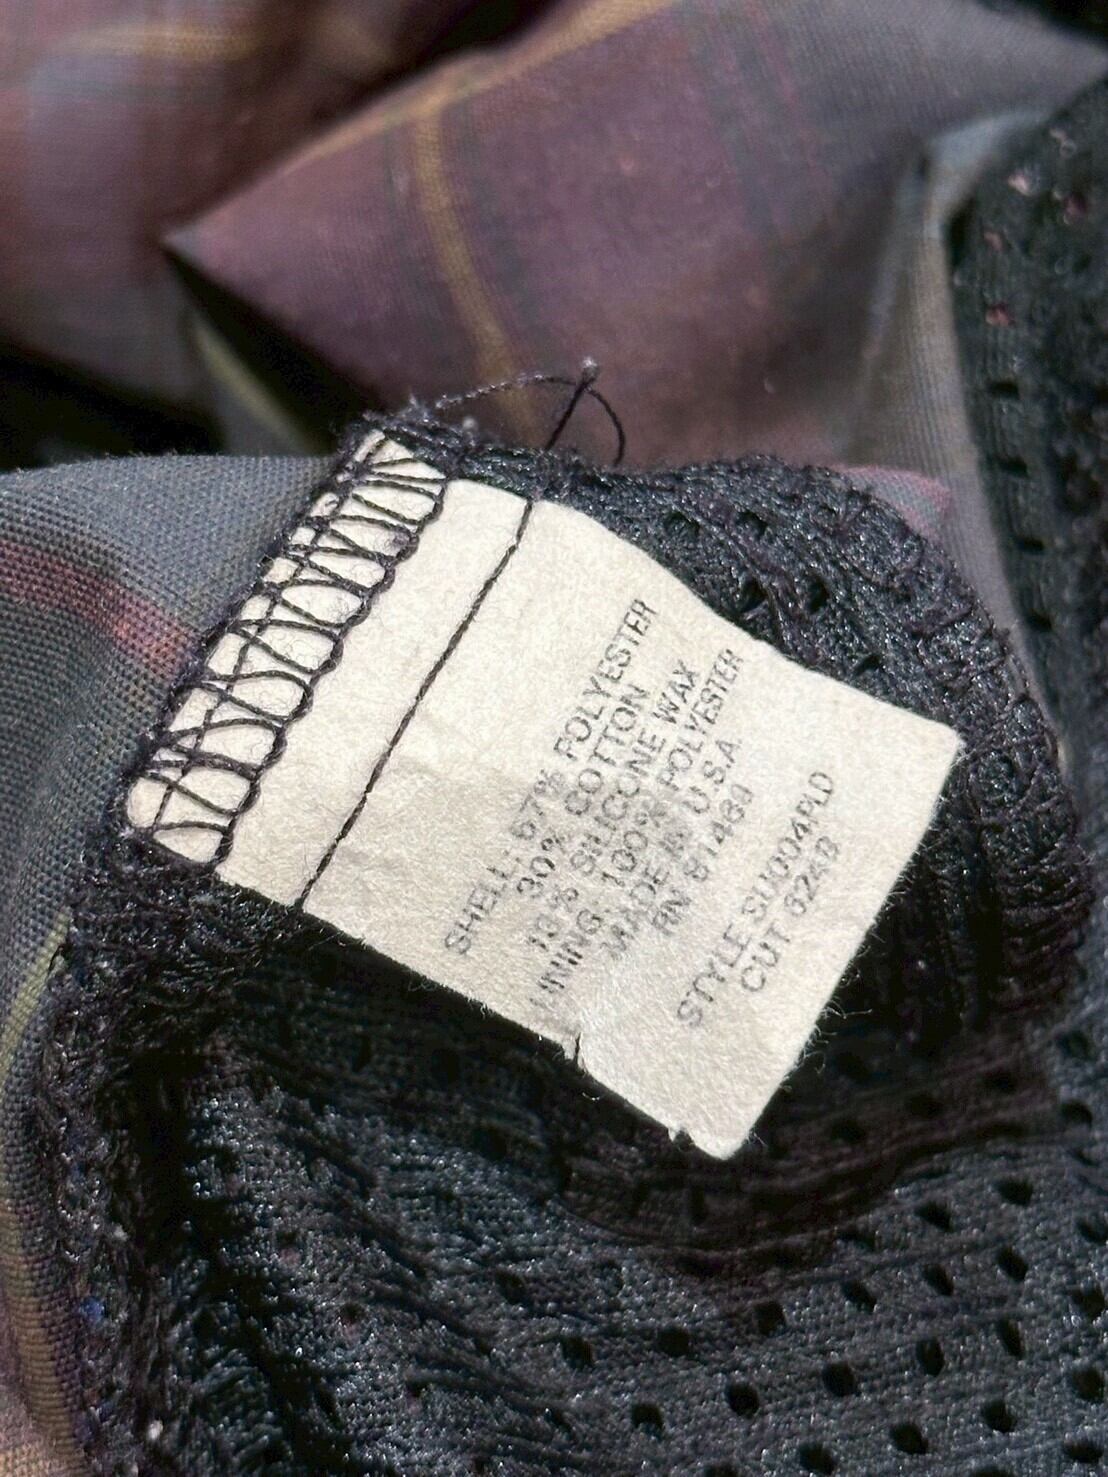 SHELL: 57% POLYESTER
30% COTTON
13% SILICONE WAX
LINING: 100% POLYESTER
MADE IN U.S.A.
RN
STYLE SU004PLD
CUT